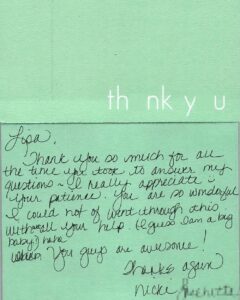 th nk y u
Lisa,
Thank you so much for all
the time you took to answer my
questions ~ I really appreciate ~
your patience. You are so wonderful
I could not of went through this
without all your help. (I guess I am a big
baby!) haha
You guys are awesome!
Thanks again
Nicki